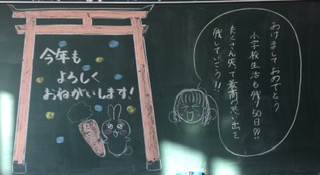 今年も
よろしく
おねがいします!
あけましておめでとう
小学校生活も残り50日!!!
たくさん笑って最高の思い出を
残していこう!!